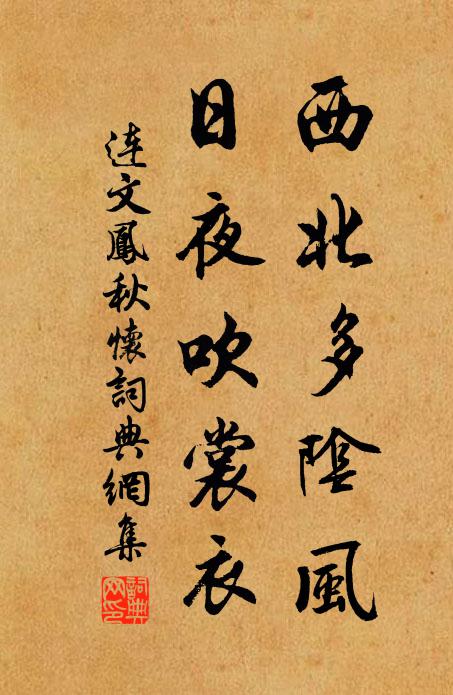 西北多陰風
日夜吹裳衣
連文鳳秋懷詞典網集
詞典
网印